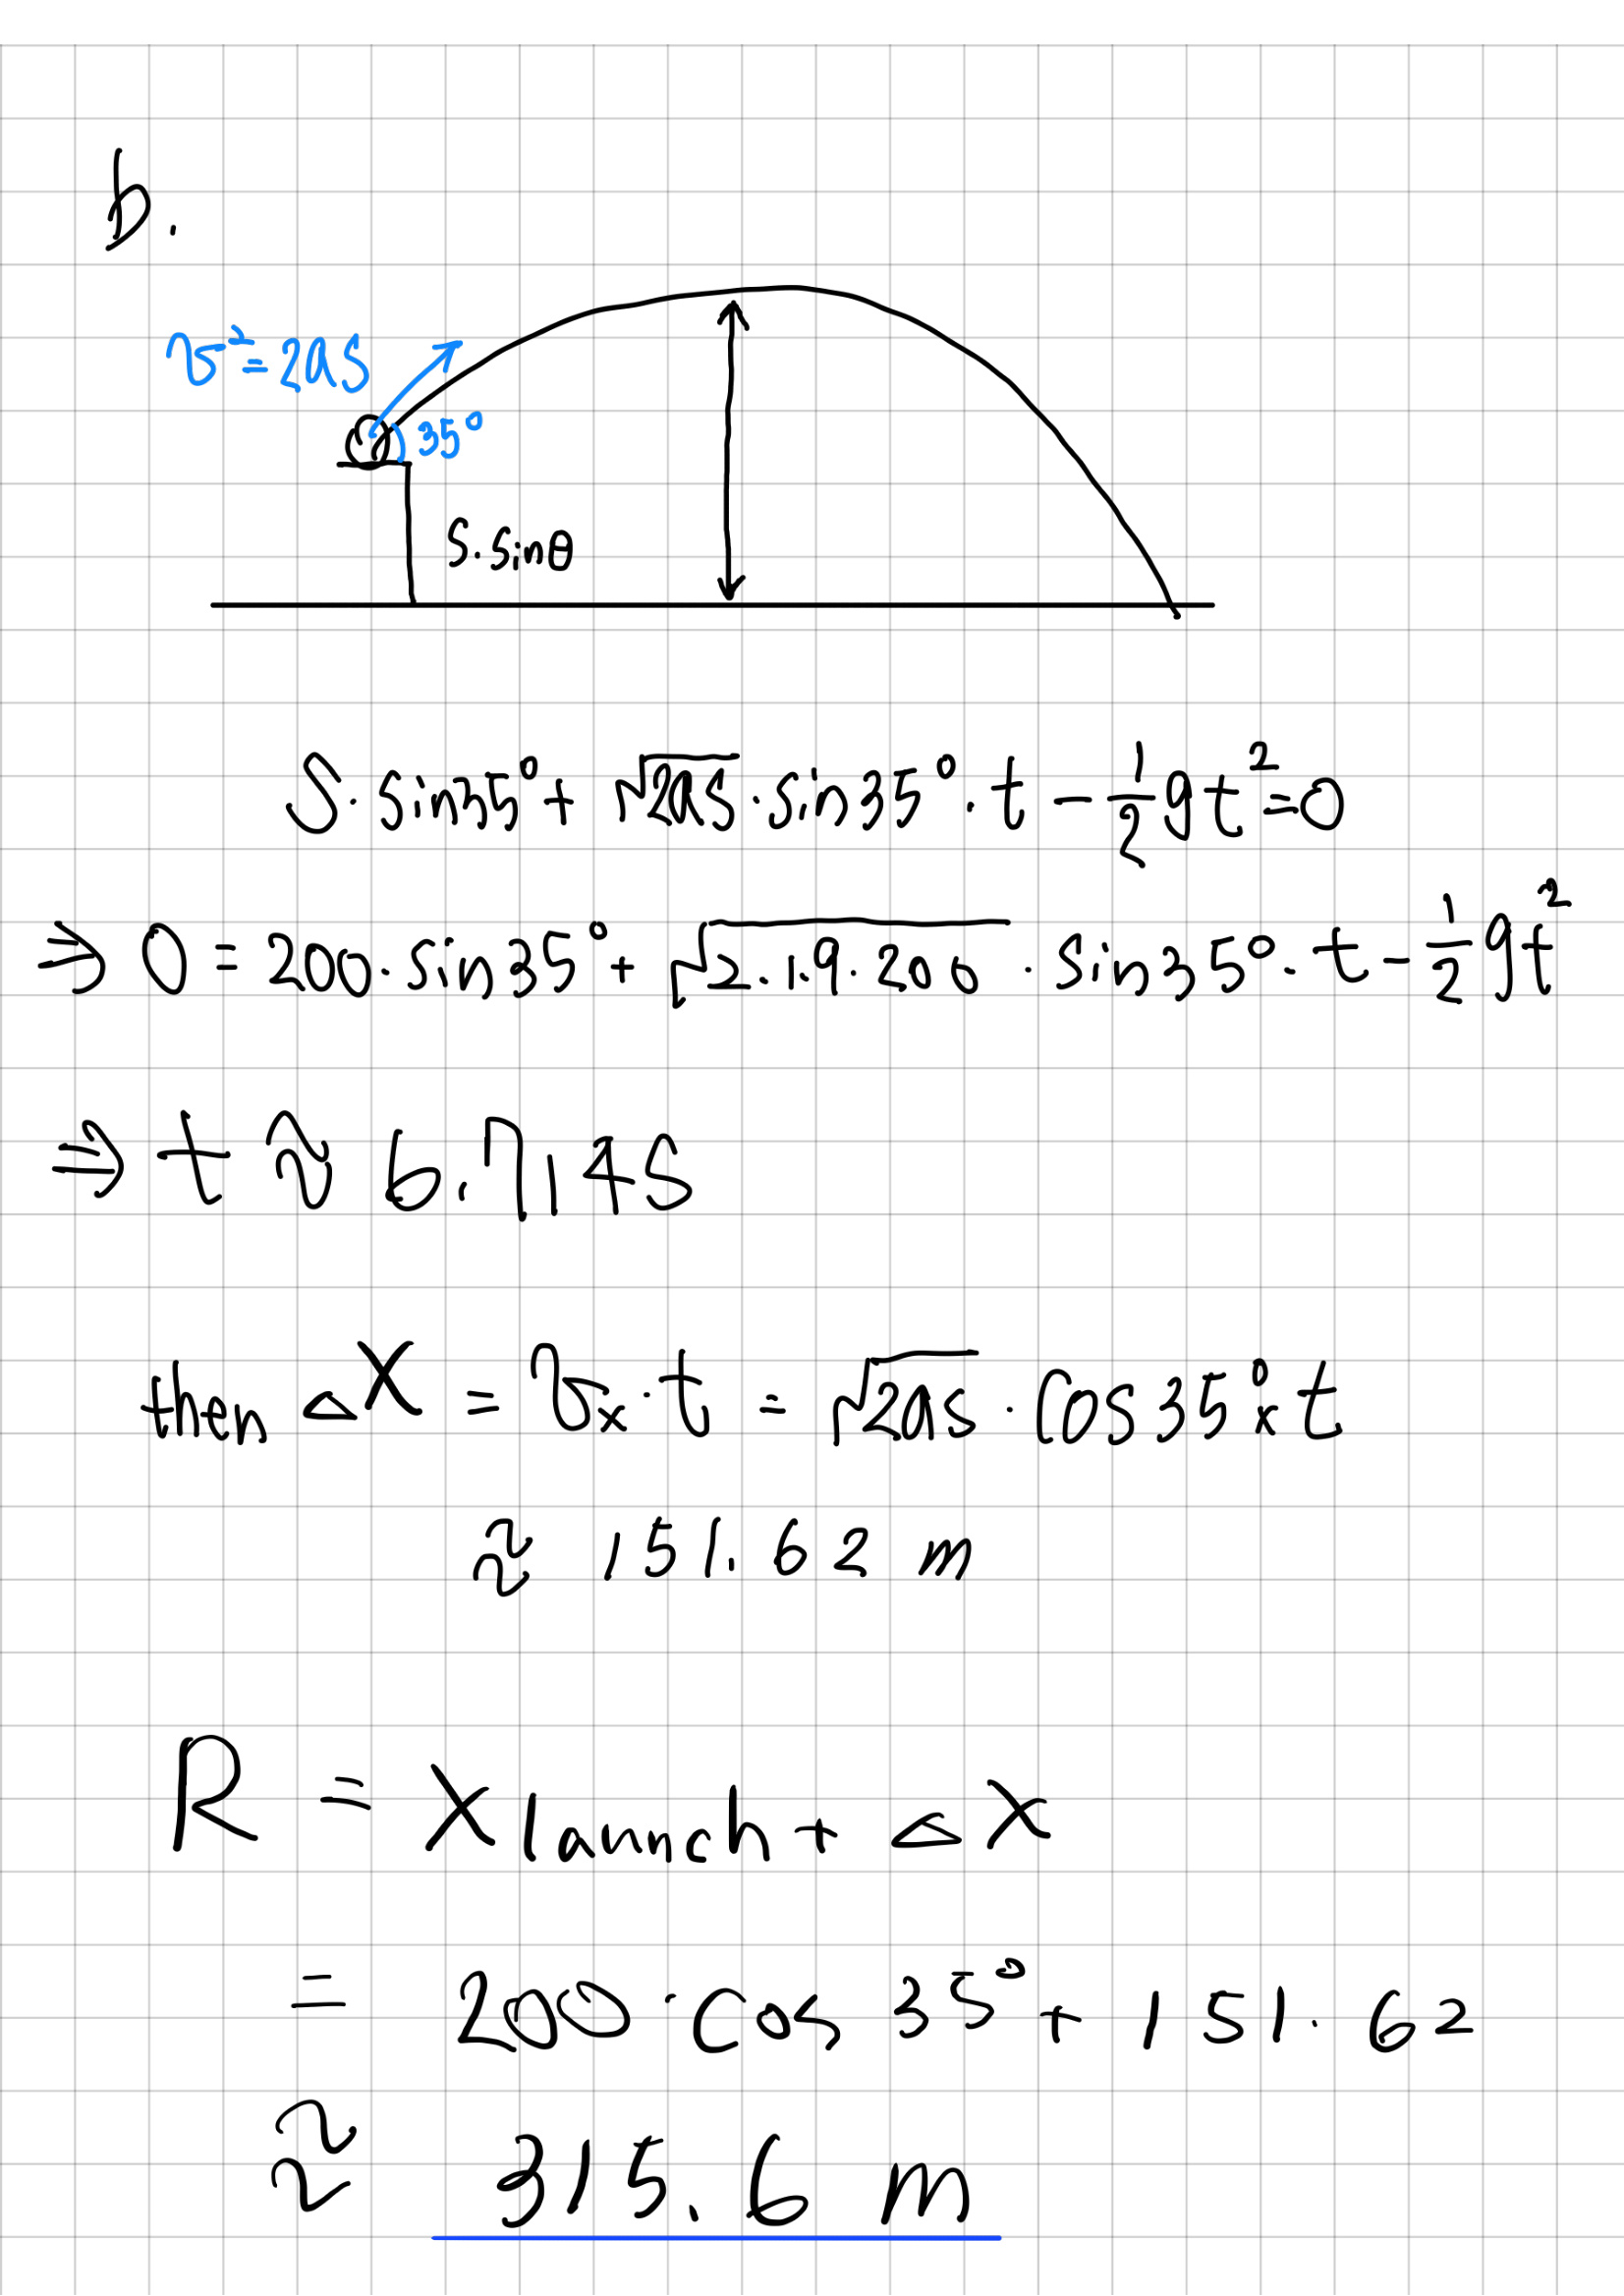 b.
v² = 2as
35°
S. sinθ
S. sin35° + √2as . sin35° . t − ½gt² = 0
⇒ 0 = 200. sin35° + √2.1.9.200 . sin35°. t − ½gt²
⇒ t ≈ 6.714s
then △X = vₓ . t = √2as . cos35° × t
≈ 151.62 m
R = X launch + △X
= 200 . cos 35° + 151.62
≈ 315.6 m